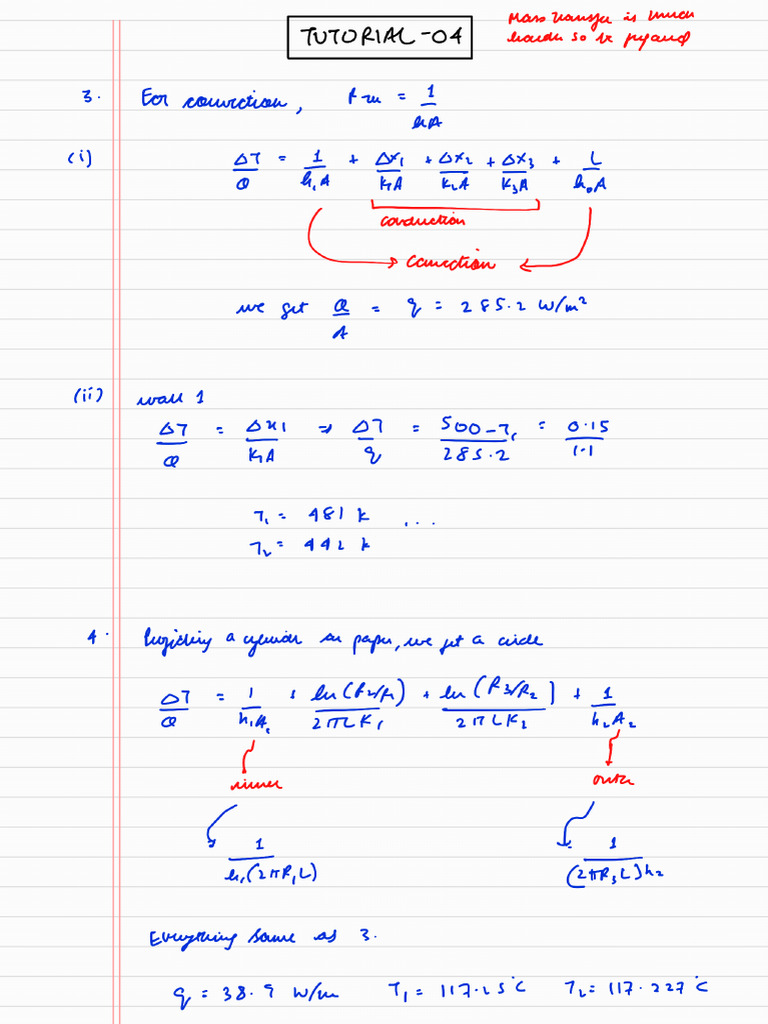 TUTORIAL-04
Mass transfer is much
harder so be prepared
3. For convection, Rth = 1/hA
(i) ΔT/Q = 1/h₁A + Δx₁/k₁A + Δx₂/k₂A + Δx₃/k₃A + 1/h₀A
conduction
Convection
we get Q/A = q = 285.2 W/m²
(ii) wall 1
ΔT/Q = Δx₁/k₁A ⇒ ΔT/q = 500-T₁/285.2 = 0.15/1.1
T₁ = 481 K ...
T₂ = 442 K
4. Projecting a cylinder on paper, we get a circle
ΔT/Q = 1/h₁A₁ + ln(R₂/R₁)/2πLK₁ + ln(R₃/R₂)/2πLK₂ + 1/h₂A₂
inner outer
1/h₁(2πR₁L) 1/(2πR₃L)h₂
Everything same as 3.
q = 38.9 W/m T₁ = 117.25°C T₂ = 117.227°C